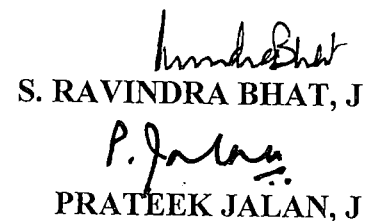 S. RAVINDRA BHAT, J
P. Jalan
PRATEEK JALAN, J